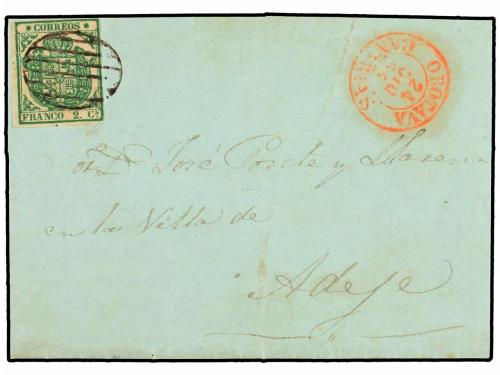 CORREOS
FRANCO 2. Cs
OROTAVA
24
DIC
CANARIAS
D. José Ponte y Llarena
en la Villa de
Adeje